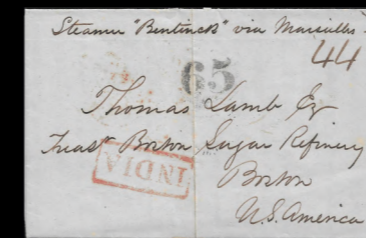 Steamer "Bentinck" via Marseilles
44
65
Thomas Lamb Eq
Treasr Boston Sugar Refinery
INDIA
Boston
U.S. America